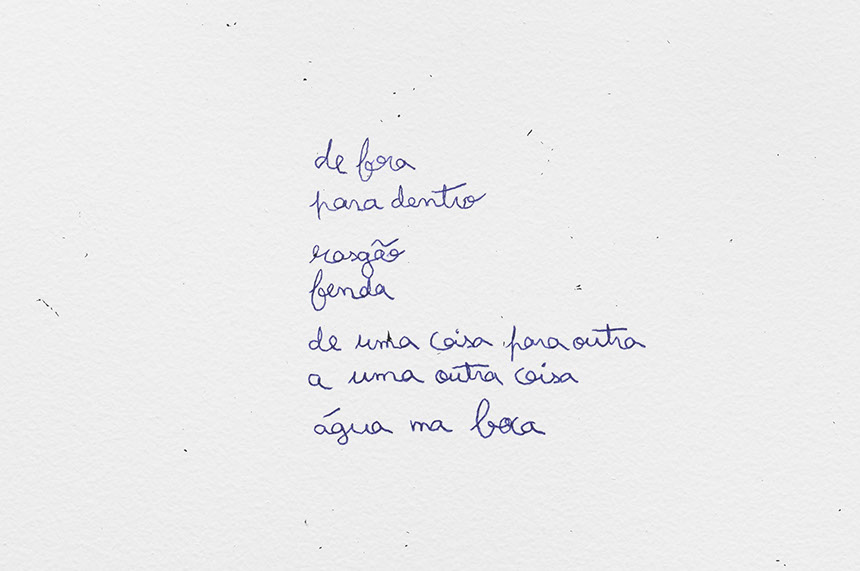 de fora
para dentro
rasgão
fenda
de uma coisa para outra
a uma outra coisa
água na boca